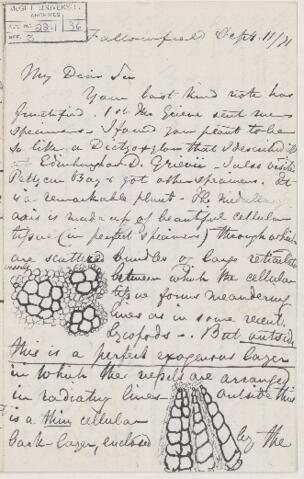 McGILL UNIVERSITY
ARCHIVES
ACC. NO. 2211 36
REF. 2
Fallowfield Sept. 11/71
My Dear Sir
Your last kind note has
gratified. 1st Mr Grieve sent me
specimens. I found your plant to be
so like a Dictyoxylon that I described it
Edinburgh as D. Grievii. I also visited
Pettycur Bay & got other specimens. It
is a remarkable plant. The medullary
axis is made up of beautiful cellular
tissue (in perfect specimens) through which
are scattered bundles of large reticulated
vessels between which the cellular
tissue forms meandering
lines as in some recent
Lycopods. But outside
this is a perfect exogenous layer
in which the vessels are arranged
in radiating lines outside this
is a thin cellular
bark-layer, enclosed by the